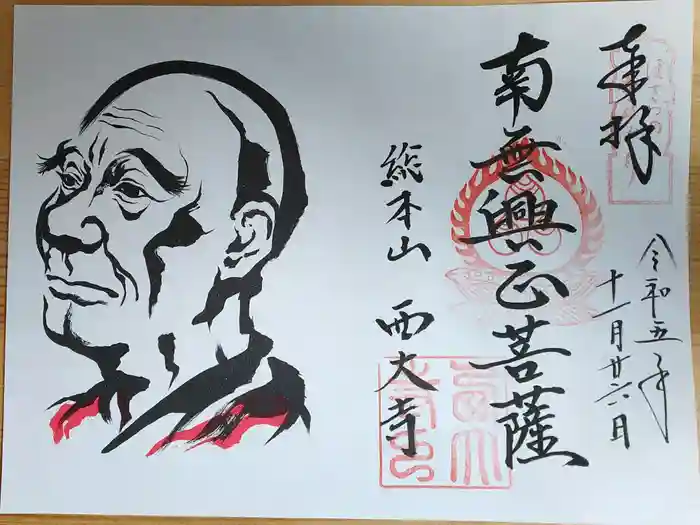 奉拝
令和五年
十一月廿六日
南無興正菩薩
総本山　西大寺